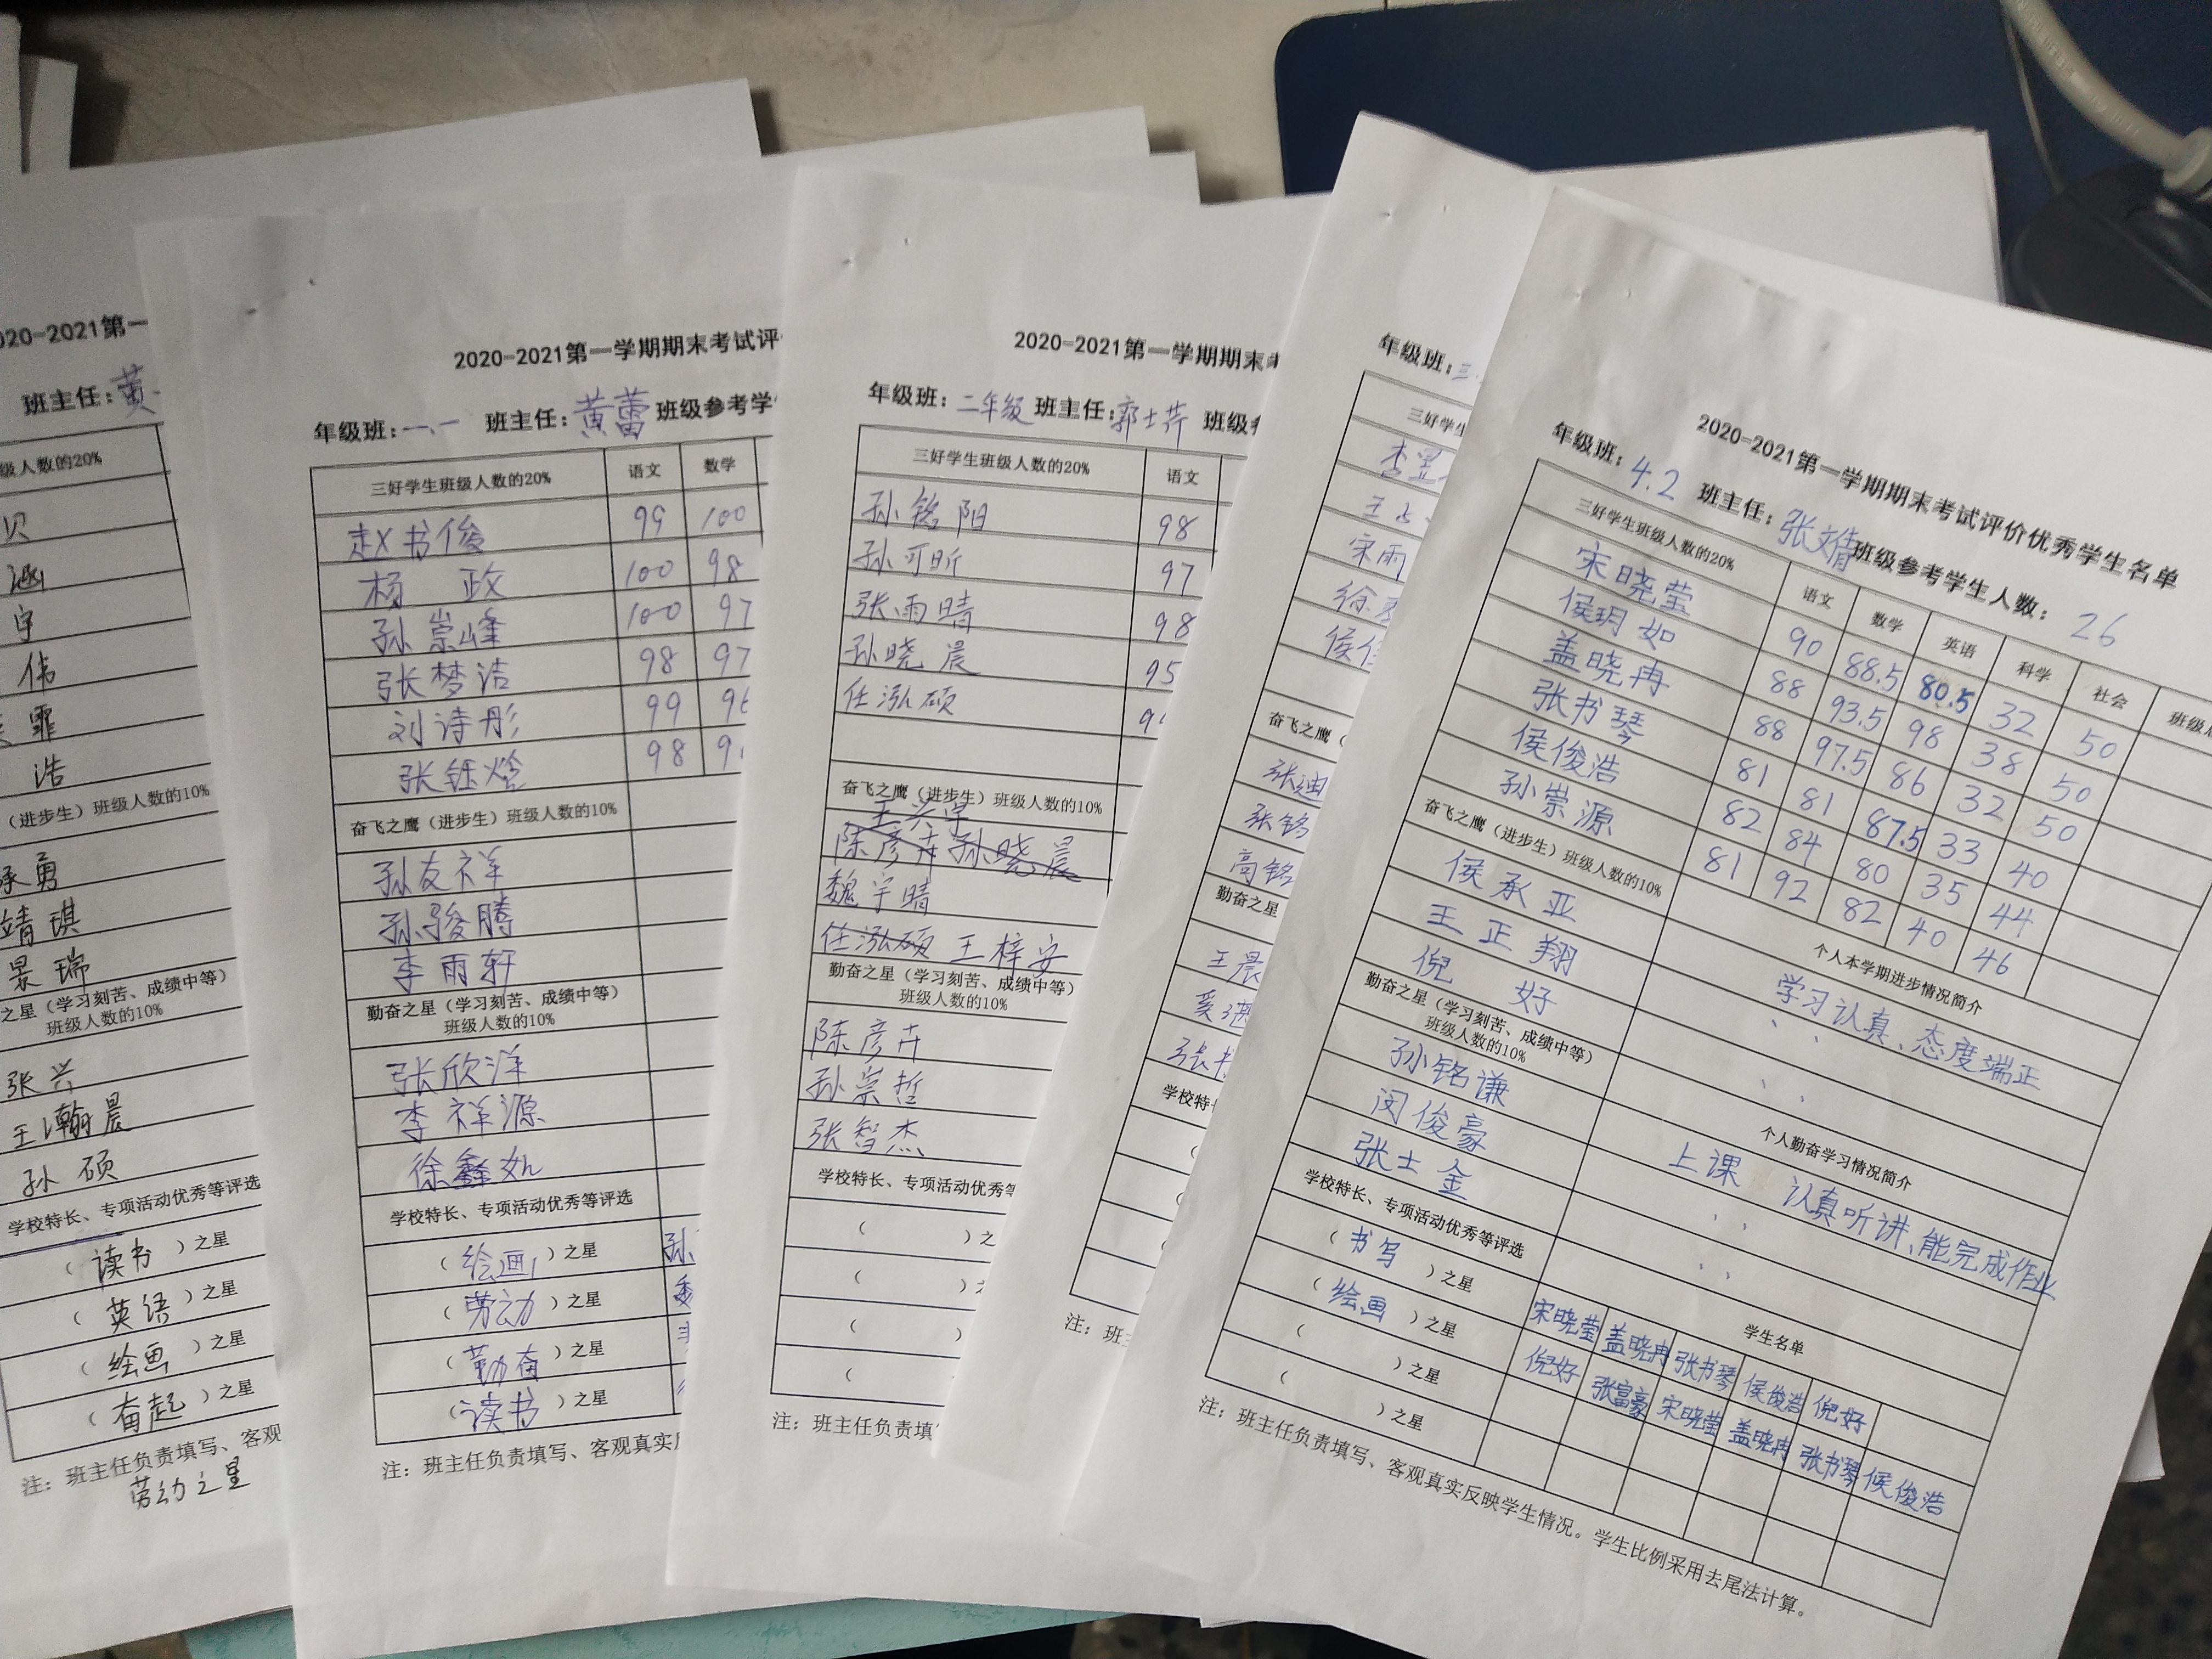 020-2021第一
班主任：黄
级人数的20%
贝
涵
宇
伟
霏
浩
（进步生）班级人数的10%
承勇
靖琪
景瑞
之星（学习刻苦、成绩中等）
班级人数的10%
张兴
王瀚晨
孙硕
学校特长、专项活动优秀等评选
（读书）之星
（英语）之星
（绘画）之星
（奋起）之星
注：班主任负责填写、客观
劳动之星
2020-2021第一学期期末考试评
年级班：一、一 班主任：黄蕾 班级参考学
三好学生班级人数的20% 语文 数学
赵书俊 99 100
杨 政 100 98
孙崇峰 100 97
张梦洁 98 97
刘诗彤 99
张钰焓 98
奋飞之鹰（进步生）班级人数的10%
孙友祥
孙骏腾
李雨轩
勤奋之星（学习刻苦、成绩中等）
班级人数的10%
张欣洋
李祥源
徐鑫如
学校特长、专项活动优秀等评选
（绘画）之星 孙
（劳动）之星
（勤奋）之星
（读书）之星
注：班主任负责填写、客观真实
2020-2021第一学期期末
年级班：二年级 班主任：郭士芹 班级
三好学生班级人数的20% 语文
孙铭阳 98
孙可昕 97
张雨晴 98
孙晓晨 95
任泓硕
奋飞之鹰（进步生）班级人数的10%
陈彦卉 孙晓晨
魏宇晴
任泓硕 王梓安
勤奋之星（学习刻苦、成绩中等）
班级人数的10%
陈彦卉
孙崇哲
张智杰
学校特长、专项活动优秀
（ ）之
（ ）
（ ）
（
注：班主任负责填
年级班：三
三好学
李
王
宋雨
徐
侯
奋飞之鹰（
张迪
张铭
高铭
勤奋之星
王晨
奚
张
学校特
（
（
（
注：班
2020-2021第一学期期末考试评价优秀学生名单
年级班：4.2 班主任：张文倩 班级参考学生人数：26
三好学生班级人数的20% 语文 数学 英语 科学 社会 班级
宋晓莹 90 88.5 80.5 32 50
侯玥如 88 93.5 98 38 50
盖晓冉 88 97.5 86 32 50
张书琴 81 81 87.5 33 40
侯俊浩 82 84 80 35 44
孙崇源 81 92 82 40 46
奋飞之鹰（进步生）班级人数的10% 个人本学期进步情况简介
侯承亚 学习认真、态度端正
王正翔 、 、
倪 好 、 、
勤奋之星（学习刻苦、成绩中等）
班级人数的10% 个人勤奋学习情况简介
孙铭谦 上课 认真听讲、能完成作业
闵俊豪 、、
张士金 、、
学校特长、专项活动优秀等评选 学生名单
（书写）之星 宋晓莹 盖晓冉 张书琴 侯俊浩 倪好
（绘画）之星 倪好 张富豪 宋晓莹 盖晓冉 张书琴 侯俊浩
（ ）之星
（ ）之星
注：班主任负责填写、客观真实反映学生情况。学生比例采用去尾法计算。